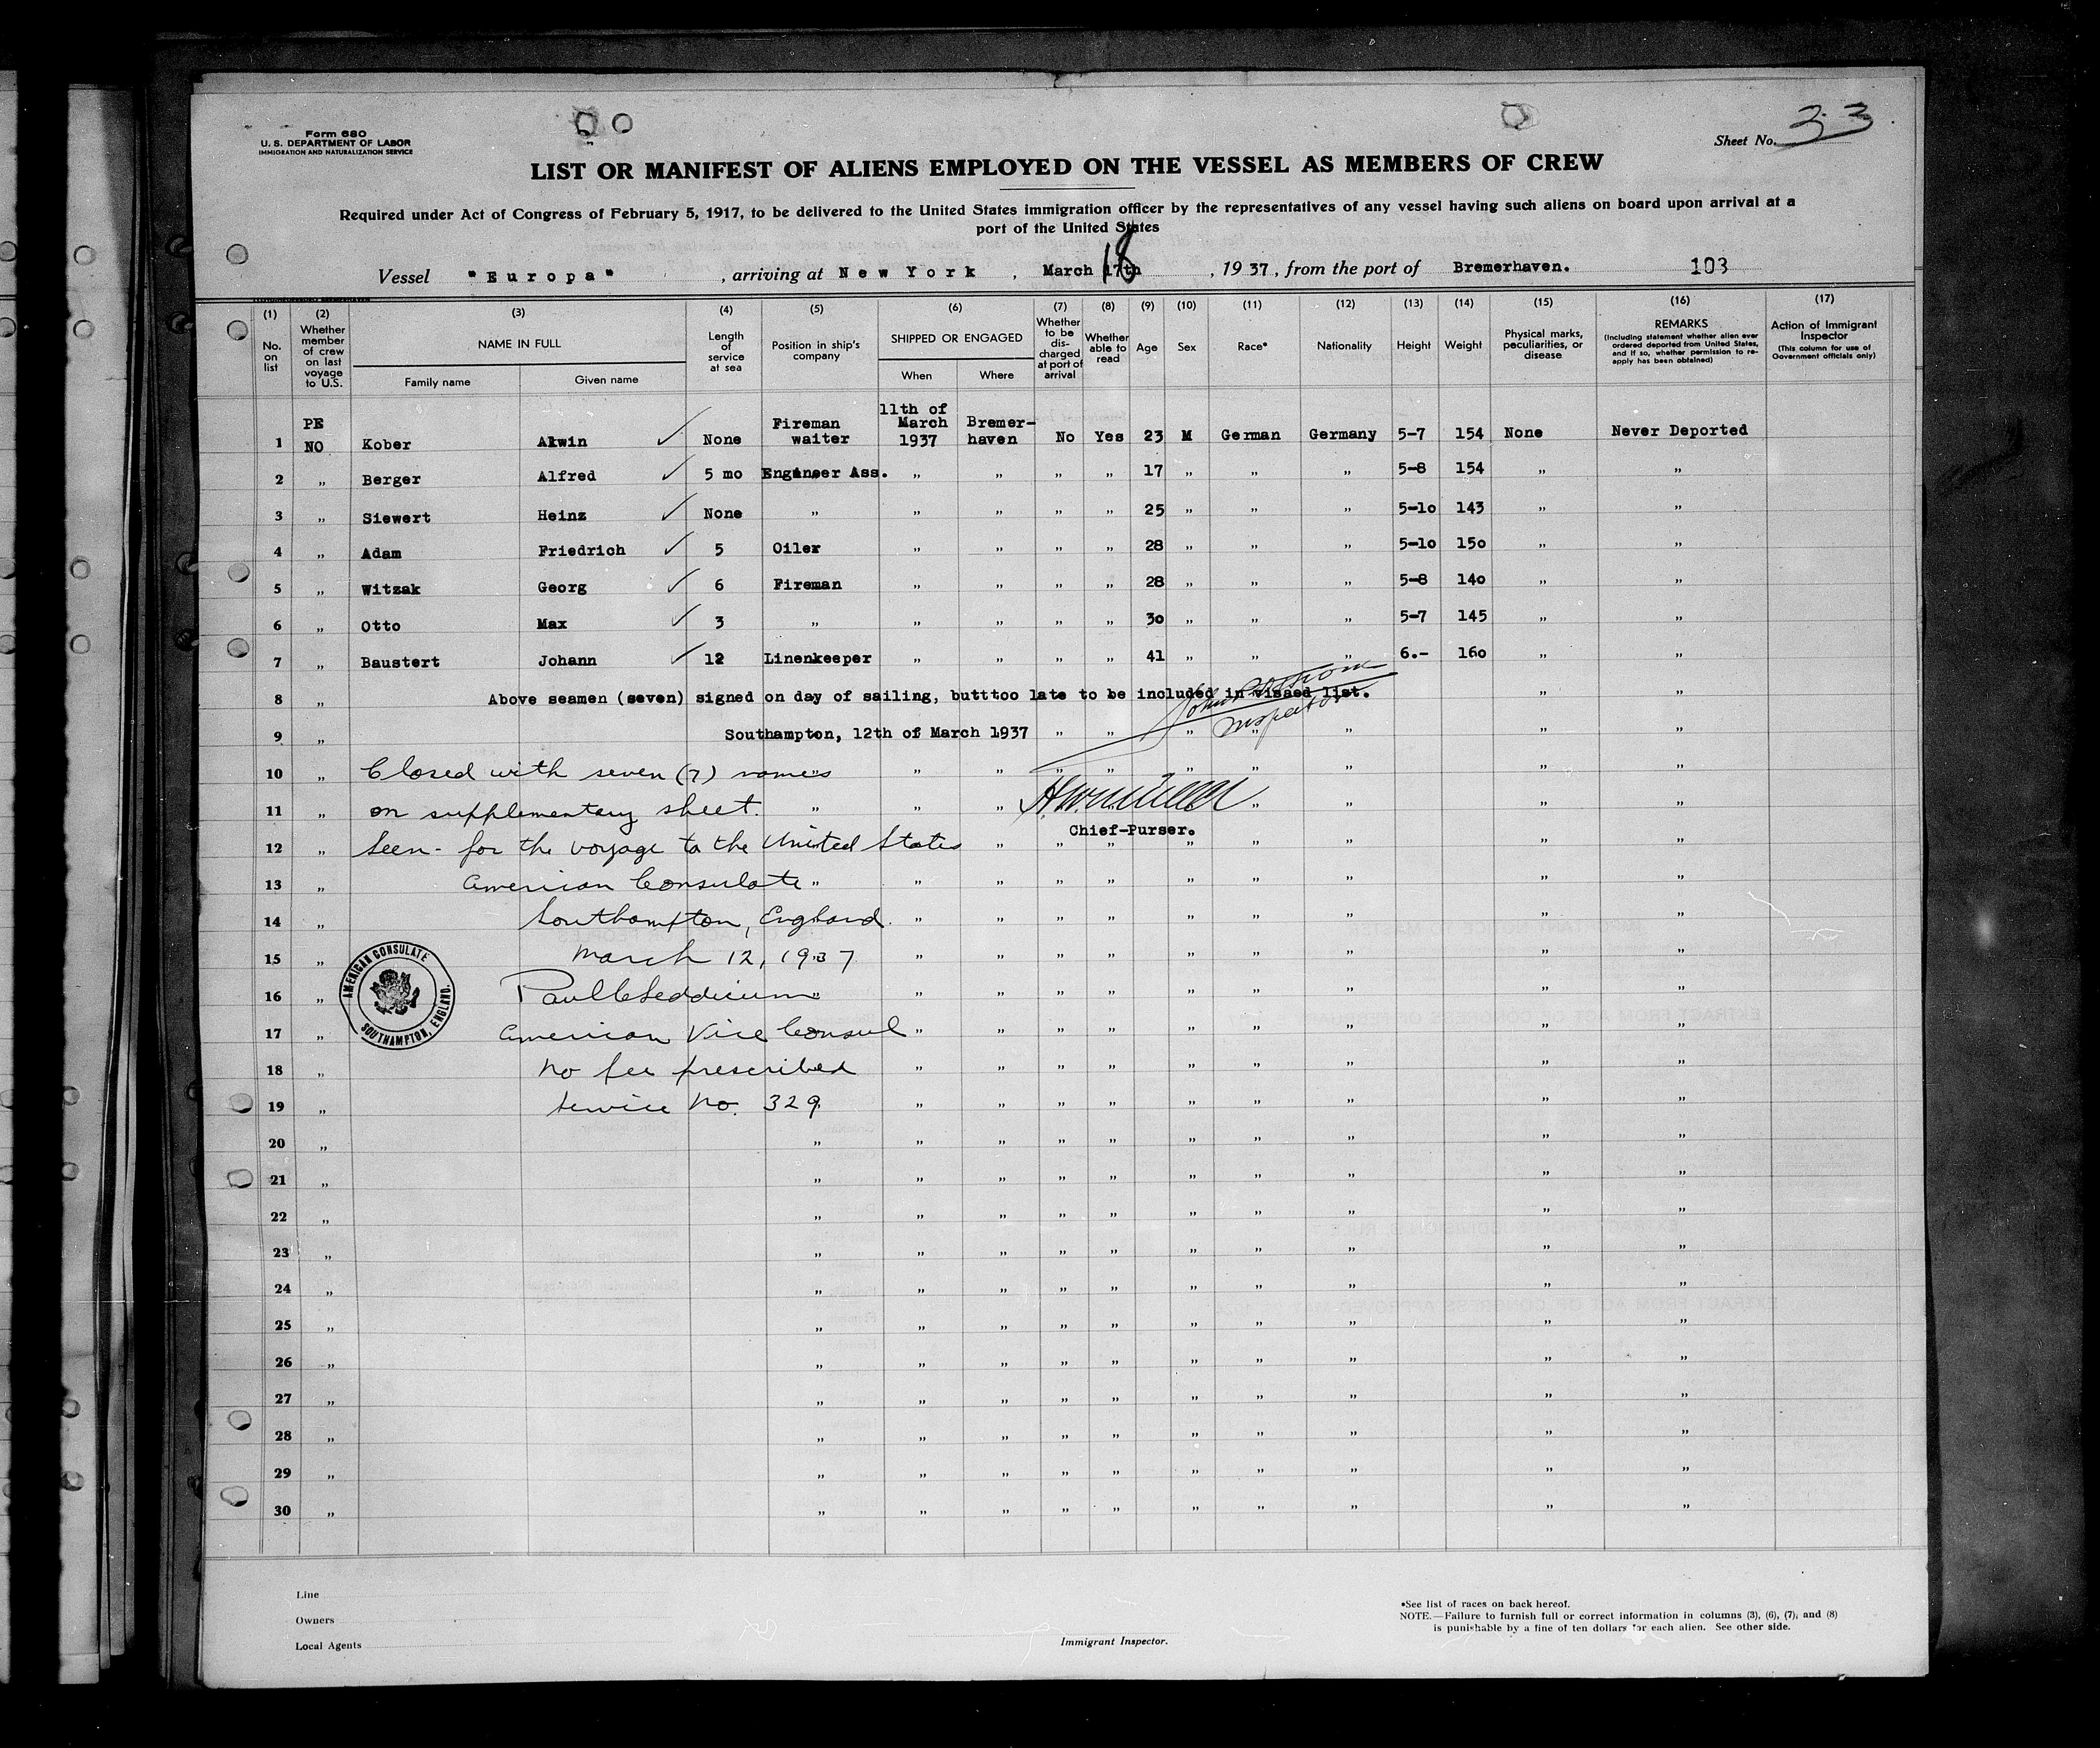 Form 680
U. S. DEPARTMENT OF LABOR
IMMIGRATION AND NATURALIZATION SERVICE
Sheet No. 33
LIST OR MANIFEST OF ALIENS EMPLOYED ON THE VESSEL AS MEMBERS OF CREW
Required under Act of Congress of February 5, 1917, to be delivered to the United States immigration officer by the representatives of any vessel having such aliens on board upon arrival at a
port of the United States
Vessel "Europa" , arriving at New York , March 17th 18 , 1937, from the port of Bremerhaven. 103
(1) (2) (3) (4) (5) (6) (7) (8) (9) (10) (11) (12) (13) (14) (15) (16) (17)
No. on list
Whether member of crew on last voyage to U.S.
NAME IN FULL
Family name Given name
Length of service at sea
Position in ship's company
SHIPPED OR ENGAGED
When Where
Whether to be discharged at port of arrival
Whether able to read
Age
Sex
Race*
Nationality
Height
Weight
Physical marks, peculiarities, or disease
REMARKS
(Including statement whether alien ever ordered deported from United States, and if so, whether permission to reapply has been obtained)
Action of Immigrant Inspector
(This column for use of Government officials only)
1 PE NO Kober Alwin ✓ None Fireman waiter 11th of March 1937 Bremer-haven No Yes 23 M German Germany 5-7 154 None Never Deported
2 " Berger Alfred ✓ 5 mo Engineer Ass. " " " " 17 " " " 5-8 154 " "
3 " Siewert Heinz ✓ None " " " " " 25 " " " 5-10 143 " "
4 " Adam Friedrich ✓ 5 Oiler " " " " 28 " " " 5-10 150 " "
5 " Witzak Georg ✓ 6 Fireman " " " " 28 " " " 5-8 140 " "
6 " Otto Max ✓ 3 " " " " " 30 " " " 5-7 145 " "
7 " Baustert Johann ✓ 12 Linenkeeper " " " " 41 " " " 6.- 160 " "
8 " Above seamen (seven) signed on day of sailing, butttoo late to be included in visaed list. " "
9 " Southampton, 12th of March 1937 " " " " " " "
Inspector
10 " Closed with seven (7) names " " " " " " " " "
11 " on supplementary sheet. " " " " " " "
Chief-Purser.
12 " Seen - for the voyage to the United States " " " " " " " "
13 " American Consulate " " " " " " " " " "
14 " Southampton, England. " " " " " " " " "
15 " March 12, 1937 " " " " " " " " "
16 " " " " " " " " " " "
17 " American Vice Consul " " " " " " " " "
18 " No fee prescribed " " " " " " " " "
19 " Service No. 329 " " " " " " " " "
AMERICAN CONSULATE
SOUTHAMPTON, ENGLAND.
20 " " " " " " " " " " "
21 " " " " " " " " " " "
22 " " " " " " " " " " "
23 " " " " " " " " " " "
24 " " " " " " " " " " "
25 " " " " " " " " " " "
26 " " " " " " " " " " "
27 " " " " " " " " " " "
28 " " " " " " " " " " "
29 " " " " " " " " " " "
30 " " " " " " " " " " "
Line
Owners
Local Agents
Immigrant Inspector.
*See list of races on back hereof.
NOTE.—Failure to furnish full or correct information in columns (3), (6), (7), and (8)
is punishable by a fine of ten dollars for each alien. See other side.